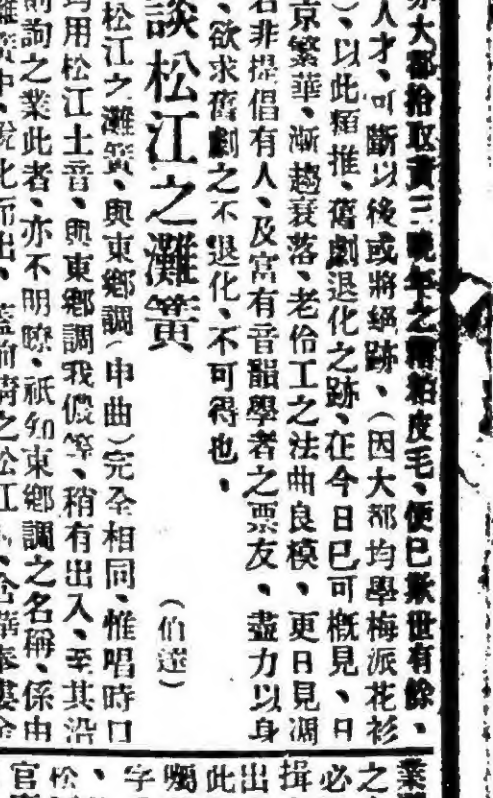 大都拾取黃三晚年之糟粕皮毛、便已欺世有餘、
人才、可斷以後或將絕跡、（因大都均學梅派花衫
）、以此類推、舊劇退化之跡、在今日已可概見、日
京繁華、漸趨衰落、老伶工之法曲良模、更日見凋
若非提倡有人、及富有音韻學者之票友、盡力以身
、欲求舊劇之不退化、不可得也、
談松江之灘簧
（伯達）
松江之灘簧、與東鄉調（申曲）完全相同、惟唱時口
均用松江土音、與東鄉調我儂等、稍有出入、至其沿
詢之業此者、亦不明瞭、祇知東鄉調之名稱、係由
灘簧中、脫化而出、蓋前清之松江
業
之
必
揖
出
此
囑
字
、
松
官